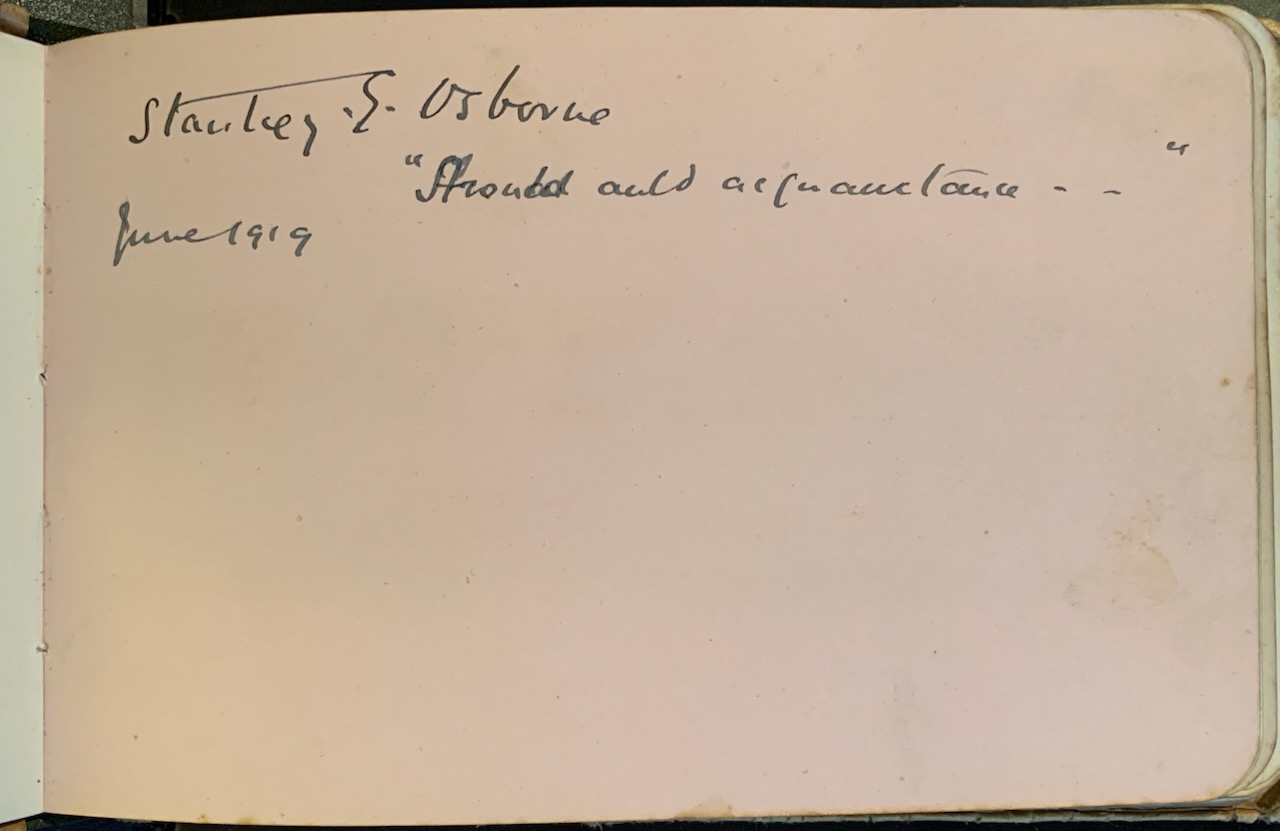 Stanley .S. Osborne
"Should auld acquaintance - - "
June 1919